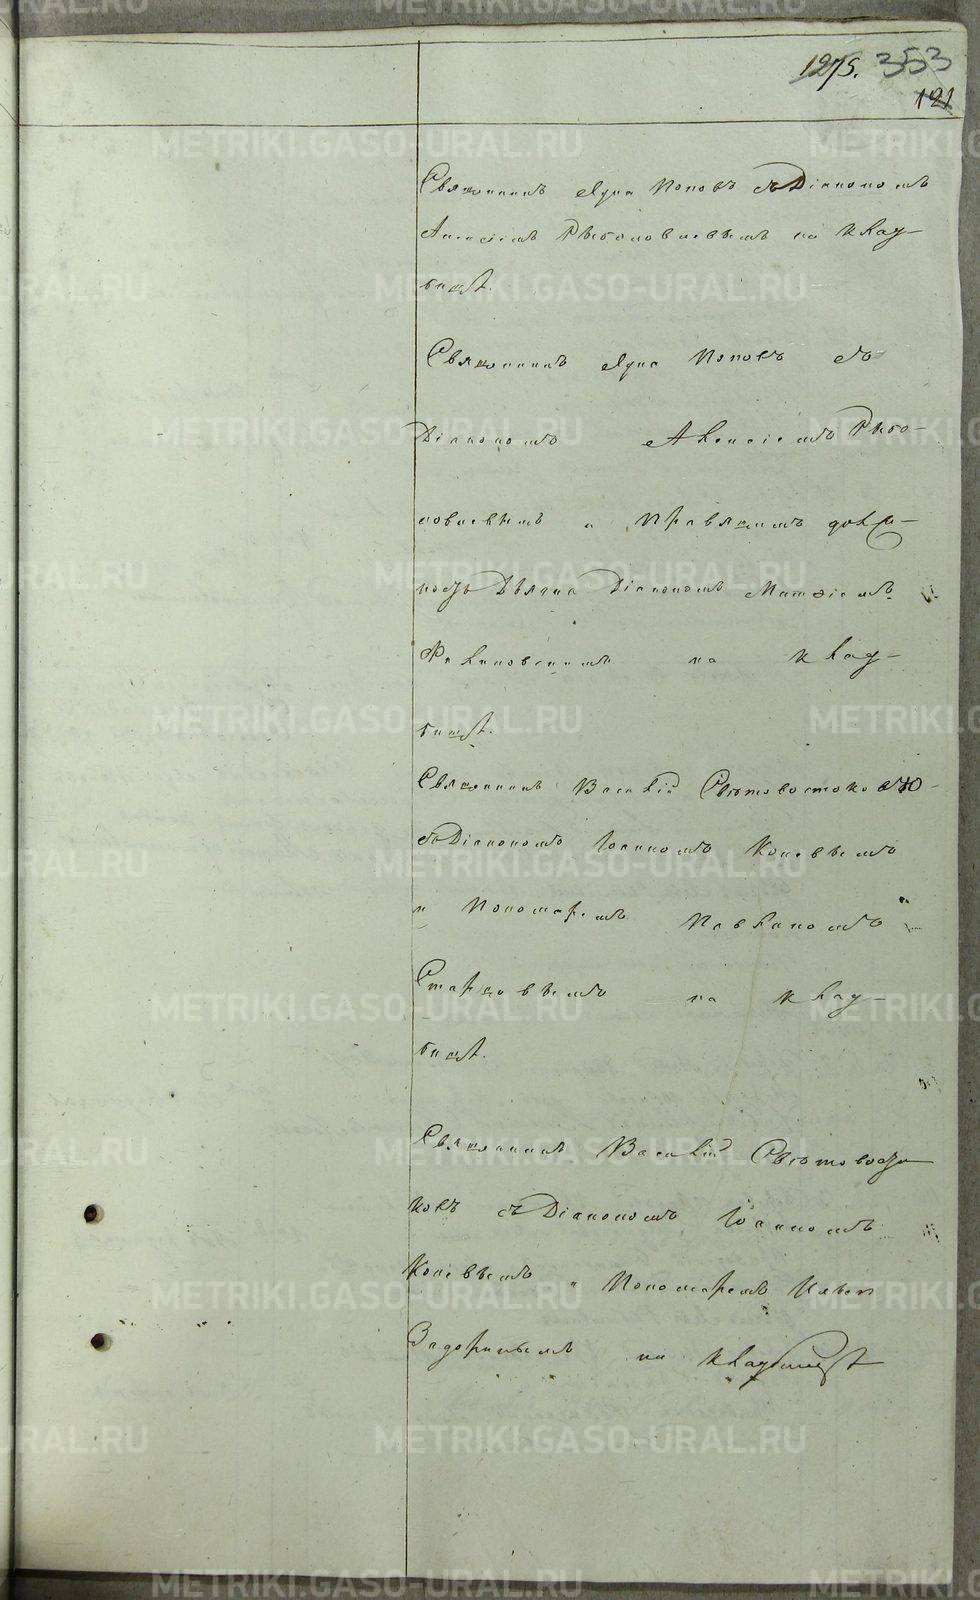 1275. 353
121
Священникъ Іуда Поповъ съ Діакономъ
Алексіемъ Рыболовлевымъ на клад-
бищѣ.
Священникъ Іуда Поповъ съ
Діакономъ Алексіемъ Рыбо-
ловлевымъ и правящимъ долж-
ность Дьячка Діакономъ Матѳіемъ
на клад-
бищѣ.
Священникъ Василій Свѣтовостоковъ
съ Діакономъ Іоанномъ Коневымъ
и Пономаремъ Павлиномъ
Старцовымъ на клад-
бищѣ.
Священникъ Василій Свѣтовосто-
ковъ съ Діакономъ Іоанномъ
Коневымъ и Пономаремъ Ильею
Задоринымъ на кладбищѣ